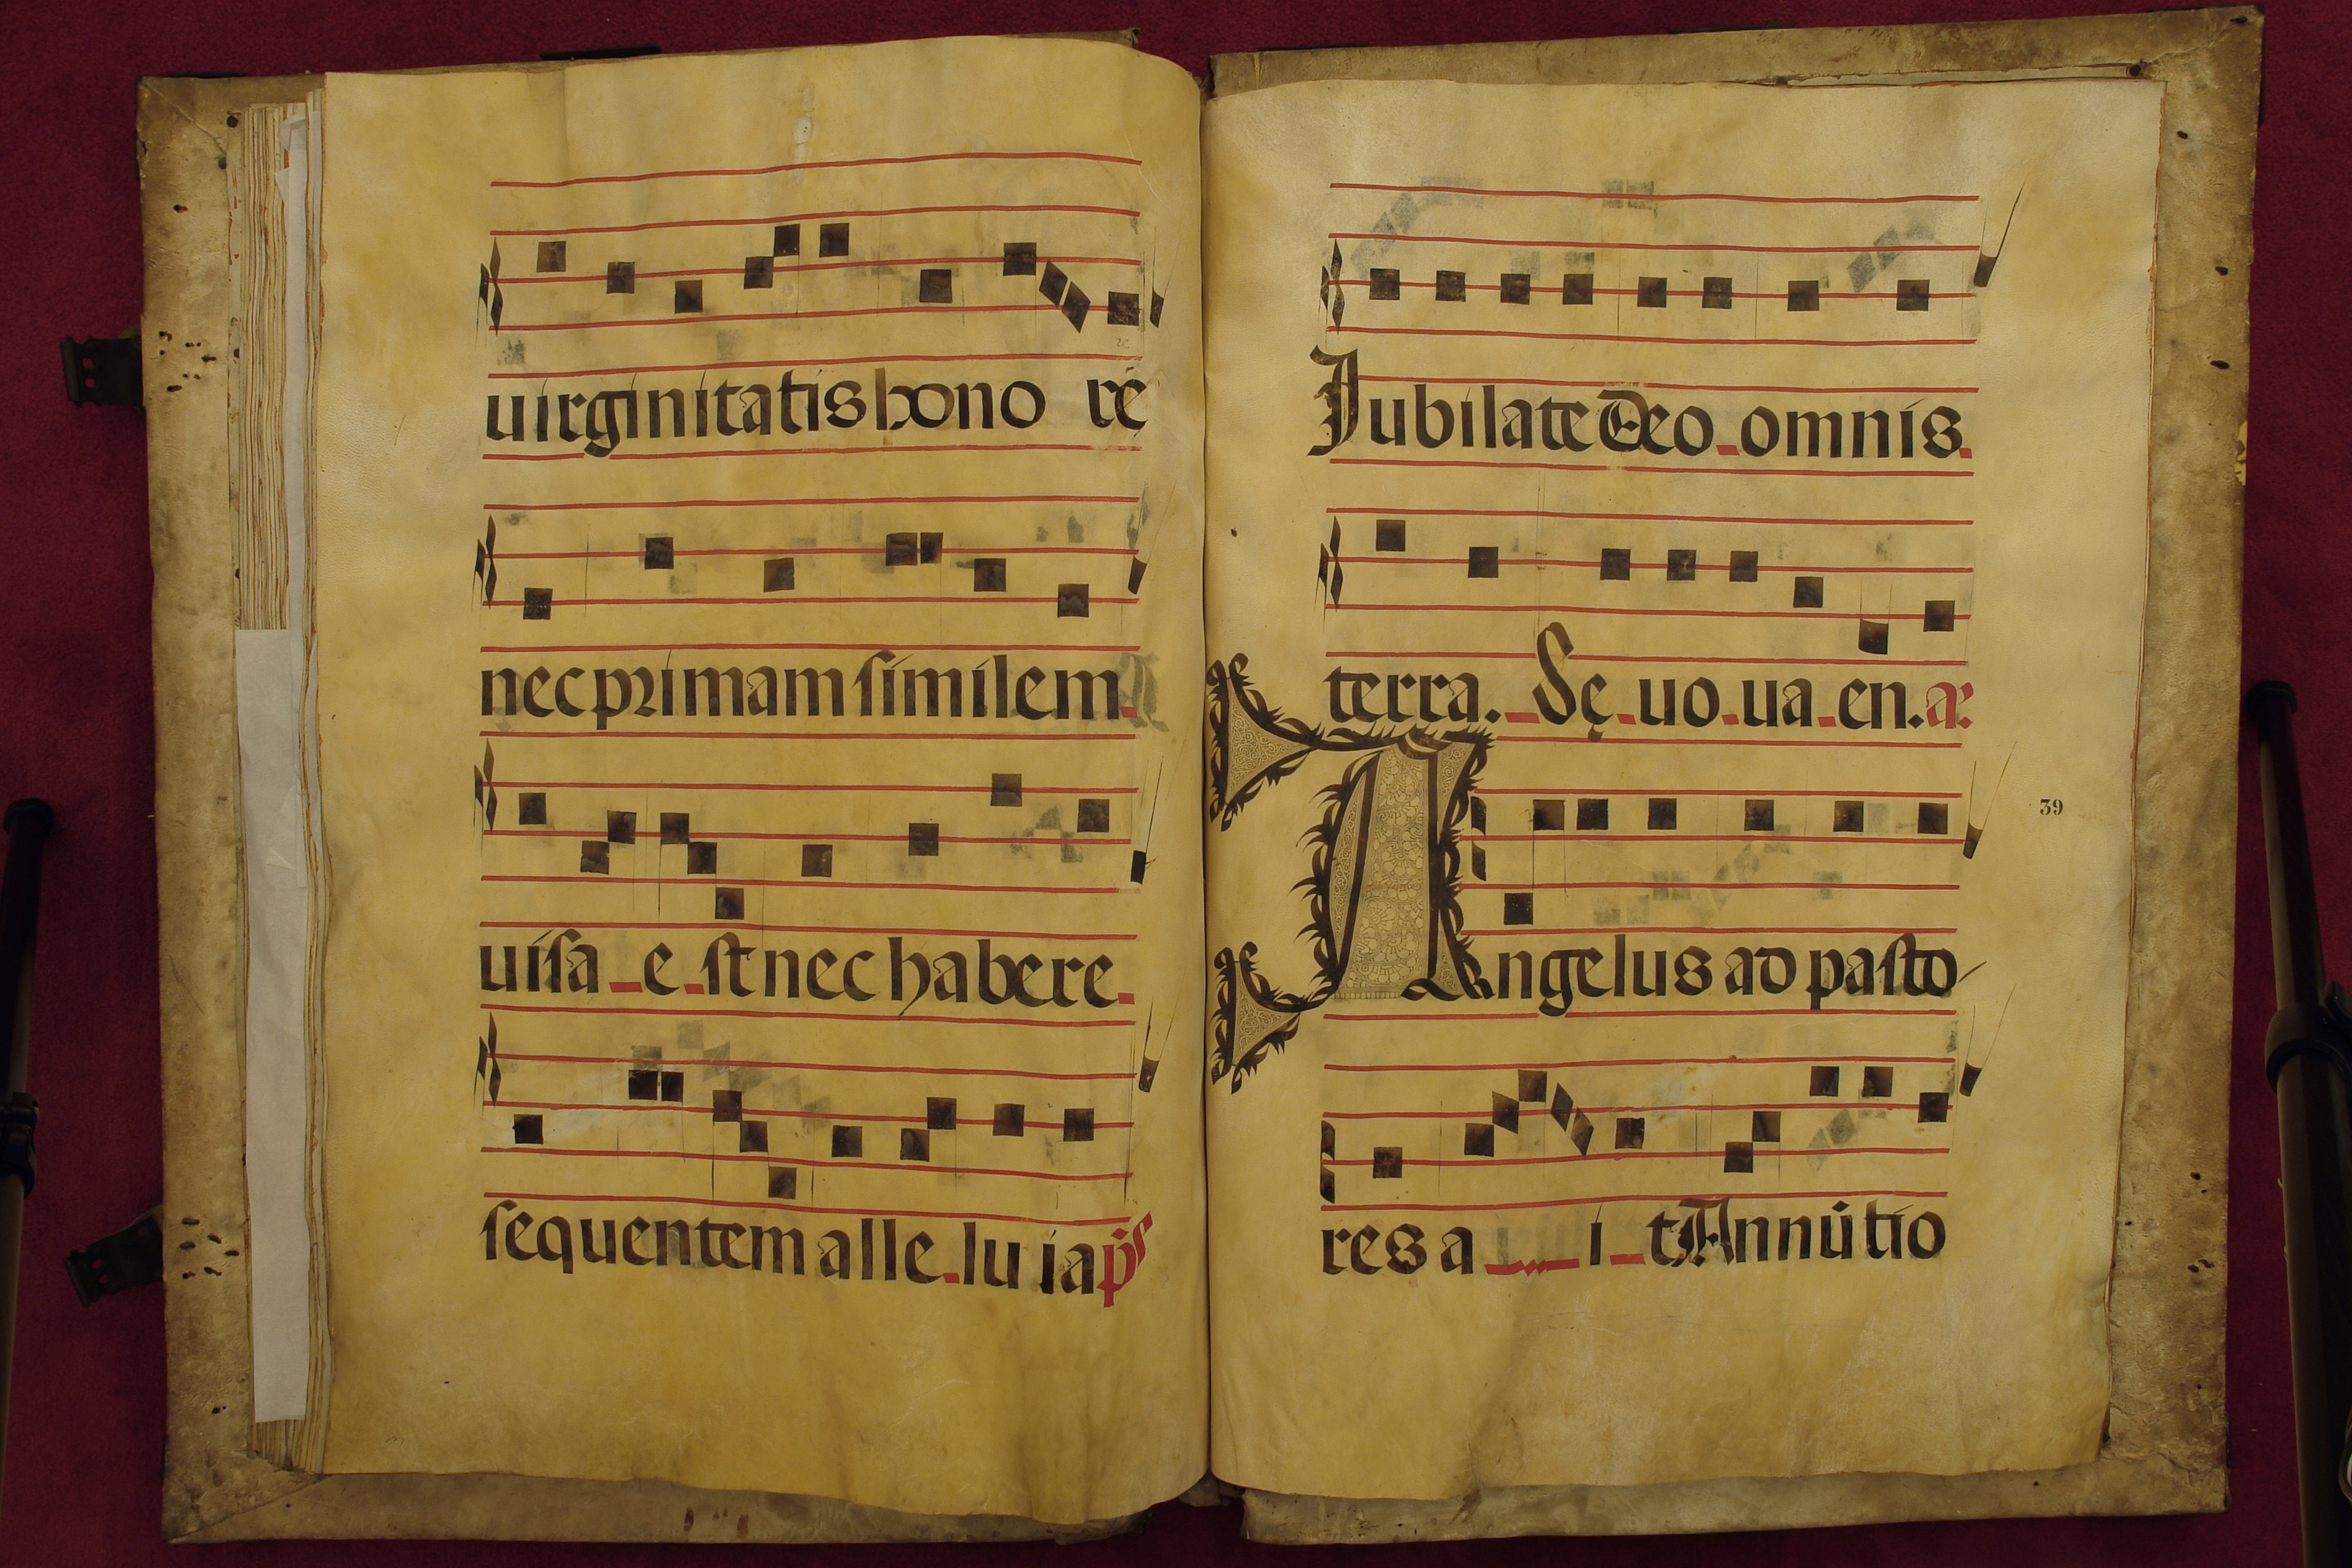 uirginitatis hono rē
nec primam similem
uisa e st nec habere
sequentem alle lu ia p̄s
Jubilate Deo omnis
terra. Sę uo ua en. a.
39
Angelus ad pasto
res a i t Annūtio